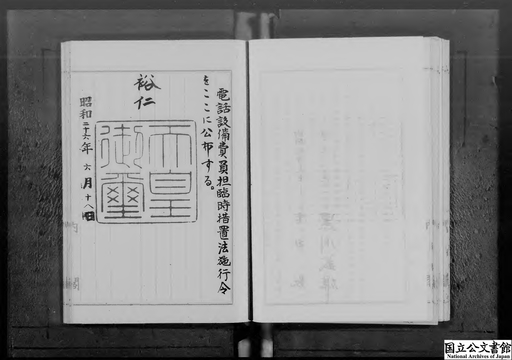 電話設備費負担臨時措置法施行令
をここに公布する。
裕仁
天皇
御璽
昭和二十六年六月十八日
国立公文書館
National Archives of Japan